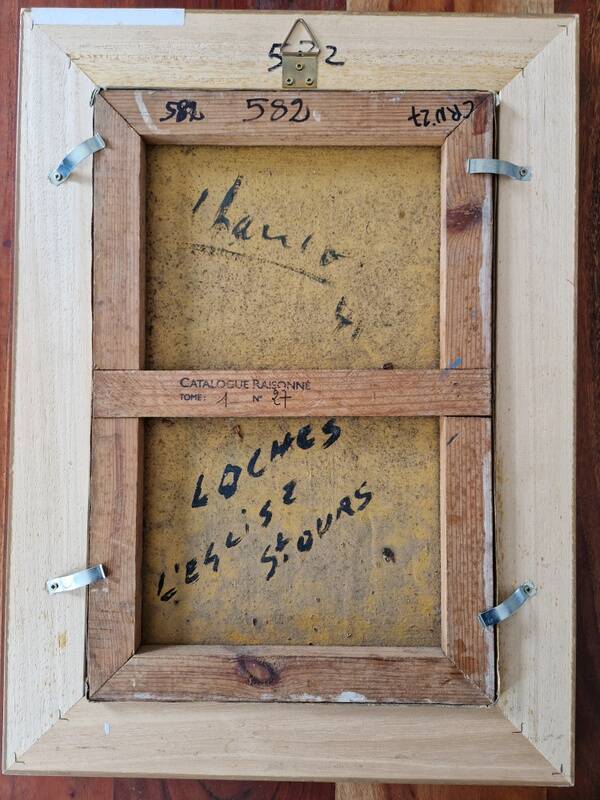 582
582
CRN°27
CATALOGUE RAISONNÉ
TOME: 1 N° 27
LOCHES
L'EGLISE
St. OURS